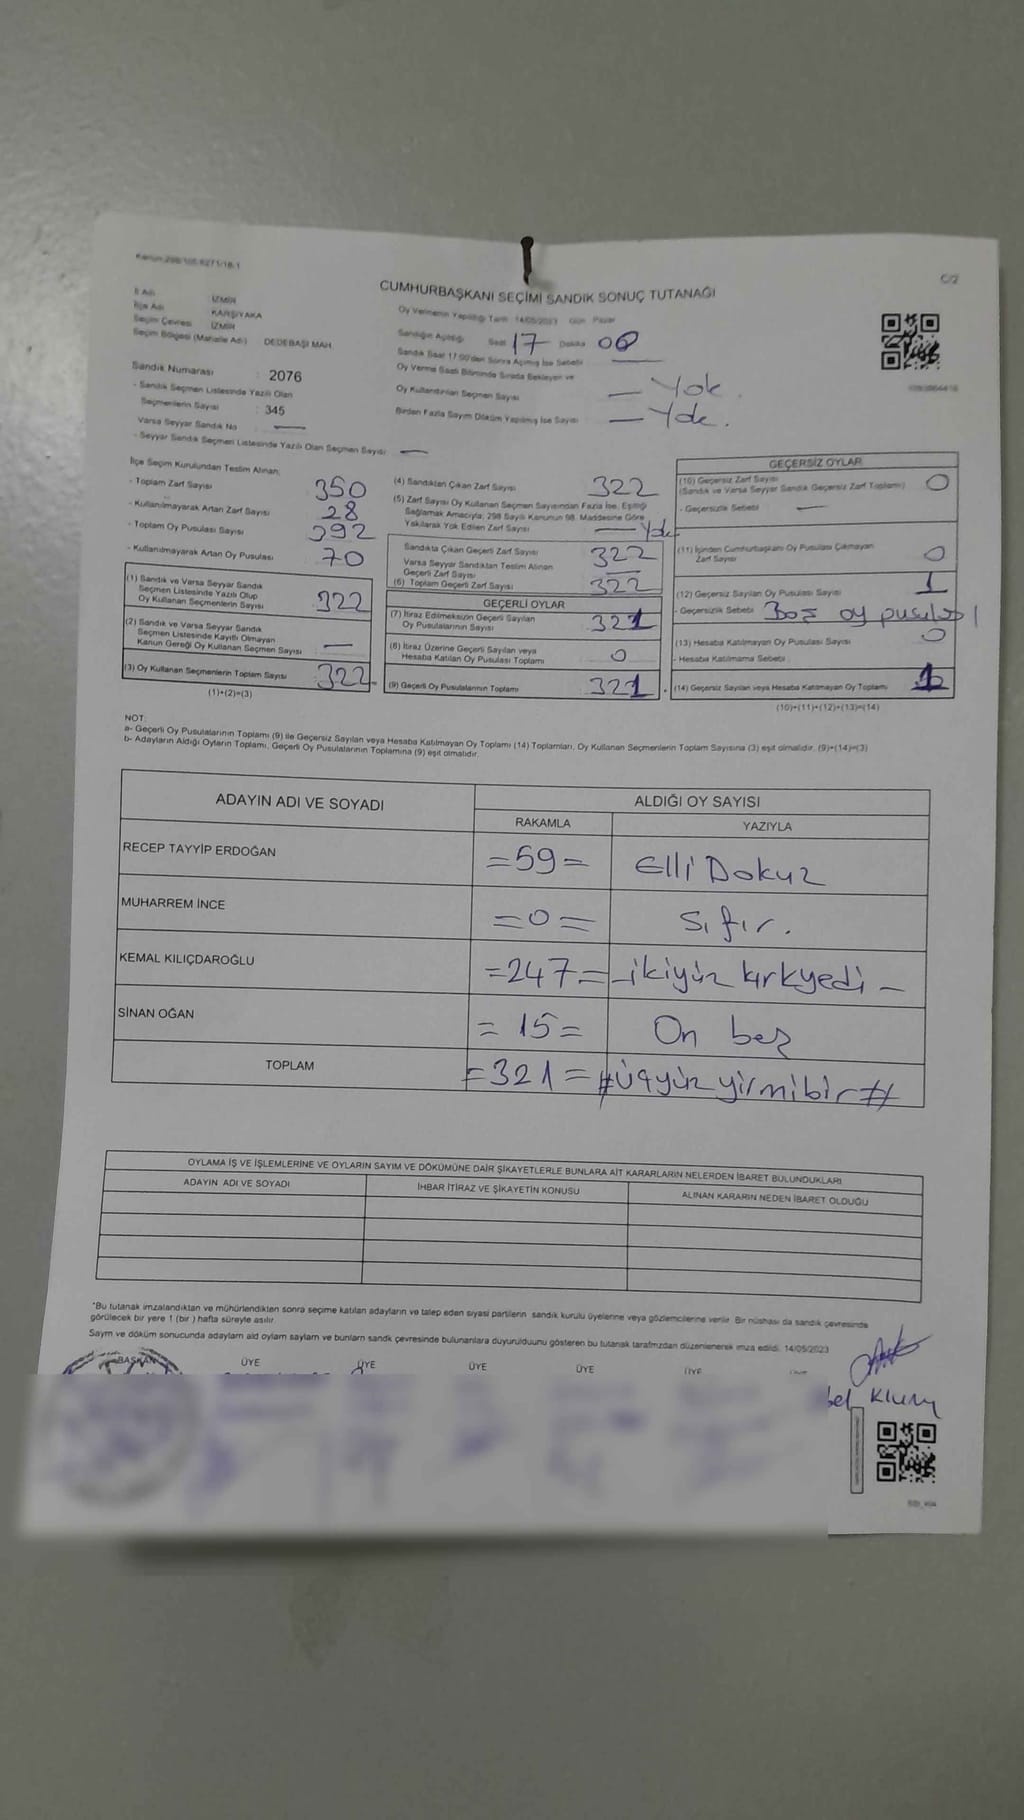 Kanun:298/105/6271/18/1
C/2
CUMHURBAŞKANI SEÇİMİ SANDIK SONUÇ TUTANAĞI
İl Adı İZMİR
İlçe Adı KARŞIYAKA
Seçim Çevresi İZMİR
Seçim Bölgesi (Mahalle Adı) DEDEBAŞI MAH.
Oy Vermenin Yapıldığı Tarih 14/05/2023 Gün Pazar
Sandığın Açılışı Saat 17 Dakika 00
Sandık Saat 17:00'den Sonra Açılmış İse Sebebi —
Oy Verme Saati Bitiminde Sırada Bekleyen ve
Oy Kullandırılan Seçmen Sayısı — Yok.
Birden Fazla Sayım Döküm Yapılmış İse Sayısı — Yok.
Sandık Numarası : 2076
- Sandık Seçmen Listesinde Yazılı Olan
Seçmenlerin Sayısı : 345
Varsa Seyyar Sandık No —
- Seyyar Sandık Seçmen Listesinde Yazılı Olan Seçmen Sayısı: —
İlçe Seçim Kurulundan Teslim Alınan;
- Toplam Zarf Sayısı 350
- Kullanılmayarak Artan Zarf Sayısı 28
- Toplam Oy Pusulası Sayısı 392
- Kullanılmayarak Artan Oy Pusulası 70
(1) Sandık ve Varsa Seyyar Sandık
Seçmen Listesinde Yazılı Olup
Oy Kullanan Seçmenlerin Sayısı 322
(2) Sandık ve Varsa Seyyar Sandık
Seçmen Listesinde Kayıtlı Olmayan
Kanun Gereği Oy Kullanan Seçmen Sayısı —
(3) Oy Kullanan Seçmenlerin Toplam Sayısı 322
(1)+(2)=(3)
(4) Sandıktan Çıkan Zarf Sayısı 322
(5) Zarf Sayısı Oy Kullanan Seçmen Sayısından Fazla İse, Eşitliği
Sağlamak Amacıyla, 298 Sayılı Kanunun 98. Maddesine Göre
Yakılarak Yok Edilen Zarf Sayısı — Yok
Sandıkta Çıkan Geçerli Zarf Sayısı 322
Varsa Seyyar Sandıktan Teslim Alınan
Geçerli Zarf Sayısı —
(6) Toplam Geçerli Zarf Sayısı 322
GEÇERLİ OYLAR
(7) İtiraz Edilmeksizin Geçerli Sayılan
Oy Pusulalarının Sayısı 321
(8) İtiraz Üzerine Geçerli Sayılan veya
Hesaba Katılan Oy Pusulası Toplamı 0
(9) Geçerli Oy Pusulalarının Toplamı 321
GEÇERSİZ OYLAR
(10) Geçersiz Zarf Sayısı
(Sandık ve Varsa Seyyar Sandık Geçersiz Zarf Toplamı) 0
- Geçersizlik Sebebi —
(11) İçinden Cumhurbaşkanı Oy Pusulası Çıkmayan
Zarf Sayısı 0
(12) Geçersiz Sayılan Oy Pusulası Sayısı 1
- Geçersizlik Sebebi Boş oy pusulası
(13) Hesaba Katılmayan Oy Pusulası Sayısı 0
- Hesaba Katılmama Sebebi
(14) Geçersiz Sayılan veya Hesaba Katılmayan Oy Toplamı 1
(10)+(11)+(12)+(13)=(14)
NOT:
a- Geçerli Oy Pusulalarının Toplamı (9) ile Geçersiz Sayılan veya Hesaba Katılmayan Oy Toplamı (14) Toplamları, Oy Kullanan Seçmenlerin Toplam Sayısına (3) eşit olmalıdır. (9)+(14)=(3)
b- Adayların Aldığı Oyların Toplamı, Geçerli Oy Pusulalarının Toplamına (9) eşit olmalıdır.
ADAYIN ADI VE SOYADI ALDIĞI OY SAYISI
RAKAMLA YAZIYLA
RECEP TAYYİP ERDOĞAN =59= Elli Dokuz
MUHARREM İNCE =0= Sıfır.
KEMAL KILIÇDAROĞLU =247= -ikiyüz kırkyedi-
SİNAN OĞAN =15= On beş
TOPLAM =321= #üçyüz yirmibir#
OYLAMA İŞ VE İŞLEMLERİNE VE OYLARIN SAYIM VE DÖKÜMÜNE DAİR ŞİKAYETLERLE BUNLARA AİT KARARLARIN NELERDEN İBARET BULUNDUKLARI
ADAYIN ADI VE SOYADI İHBAR İTİRAZ VE ŞİKAYETİN KONUSU ALINAN KARARIN NEDEN İBARET OLDUĞU
"Bu tutanak imzalandıktan ve mühürlendikten sonra seçime katılan adayların ve talep eden siyasi partilerin sandık kurulu üyelerine veya gözlemcilerine verilir. Bir nüshası da sandık çevresinde
görülecek bir yere 1 (bir) hafta süreyle asılır.
Sayım ve döküm sonucunda adayların ald oyların sayların ve bunların sandk çevresinde bulunanlara duyurulduunu gösteren bu tutanak tarafmzdan düzenlenerek imza edildi. 14/05/2023
BAŞKAN ÜYE ÜYE ÜYE ÜYE ÜYE